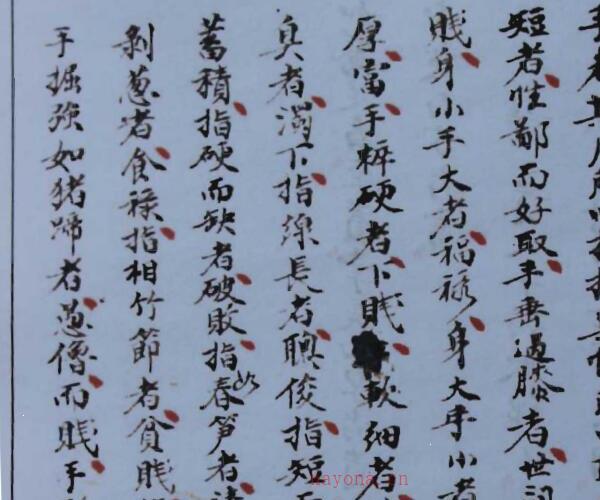 短者性鄙而好取手垂过膝者世
贱身小手大者福禄身大手小者
厚富手粹硬者下贱軟细者
臭者濁下指綜長者聰俊指短而
蓄積指硬而缺者破敗指如春笋者
剝葱者食祿指相竹節者貧賤
手掘強如猪蹄者愚僧而賎手
nayona.cn